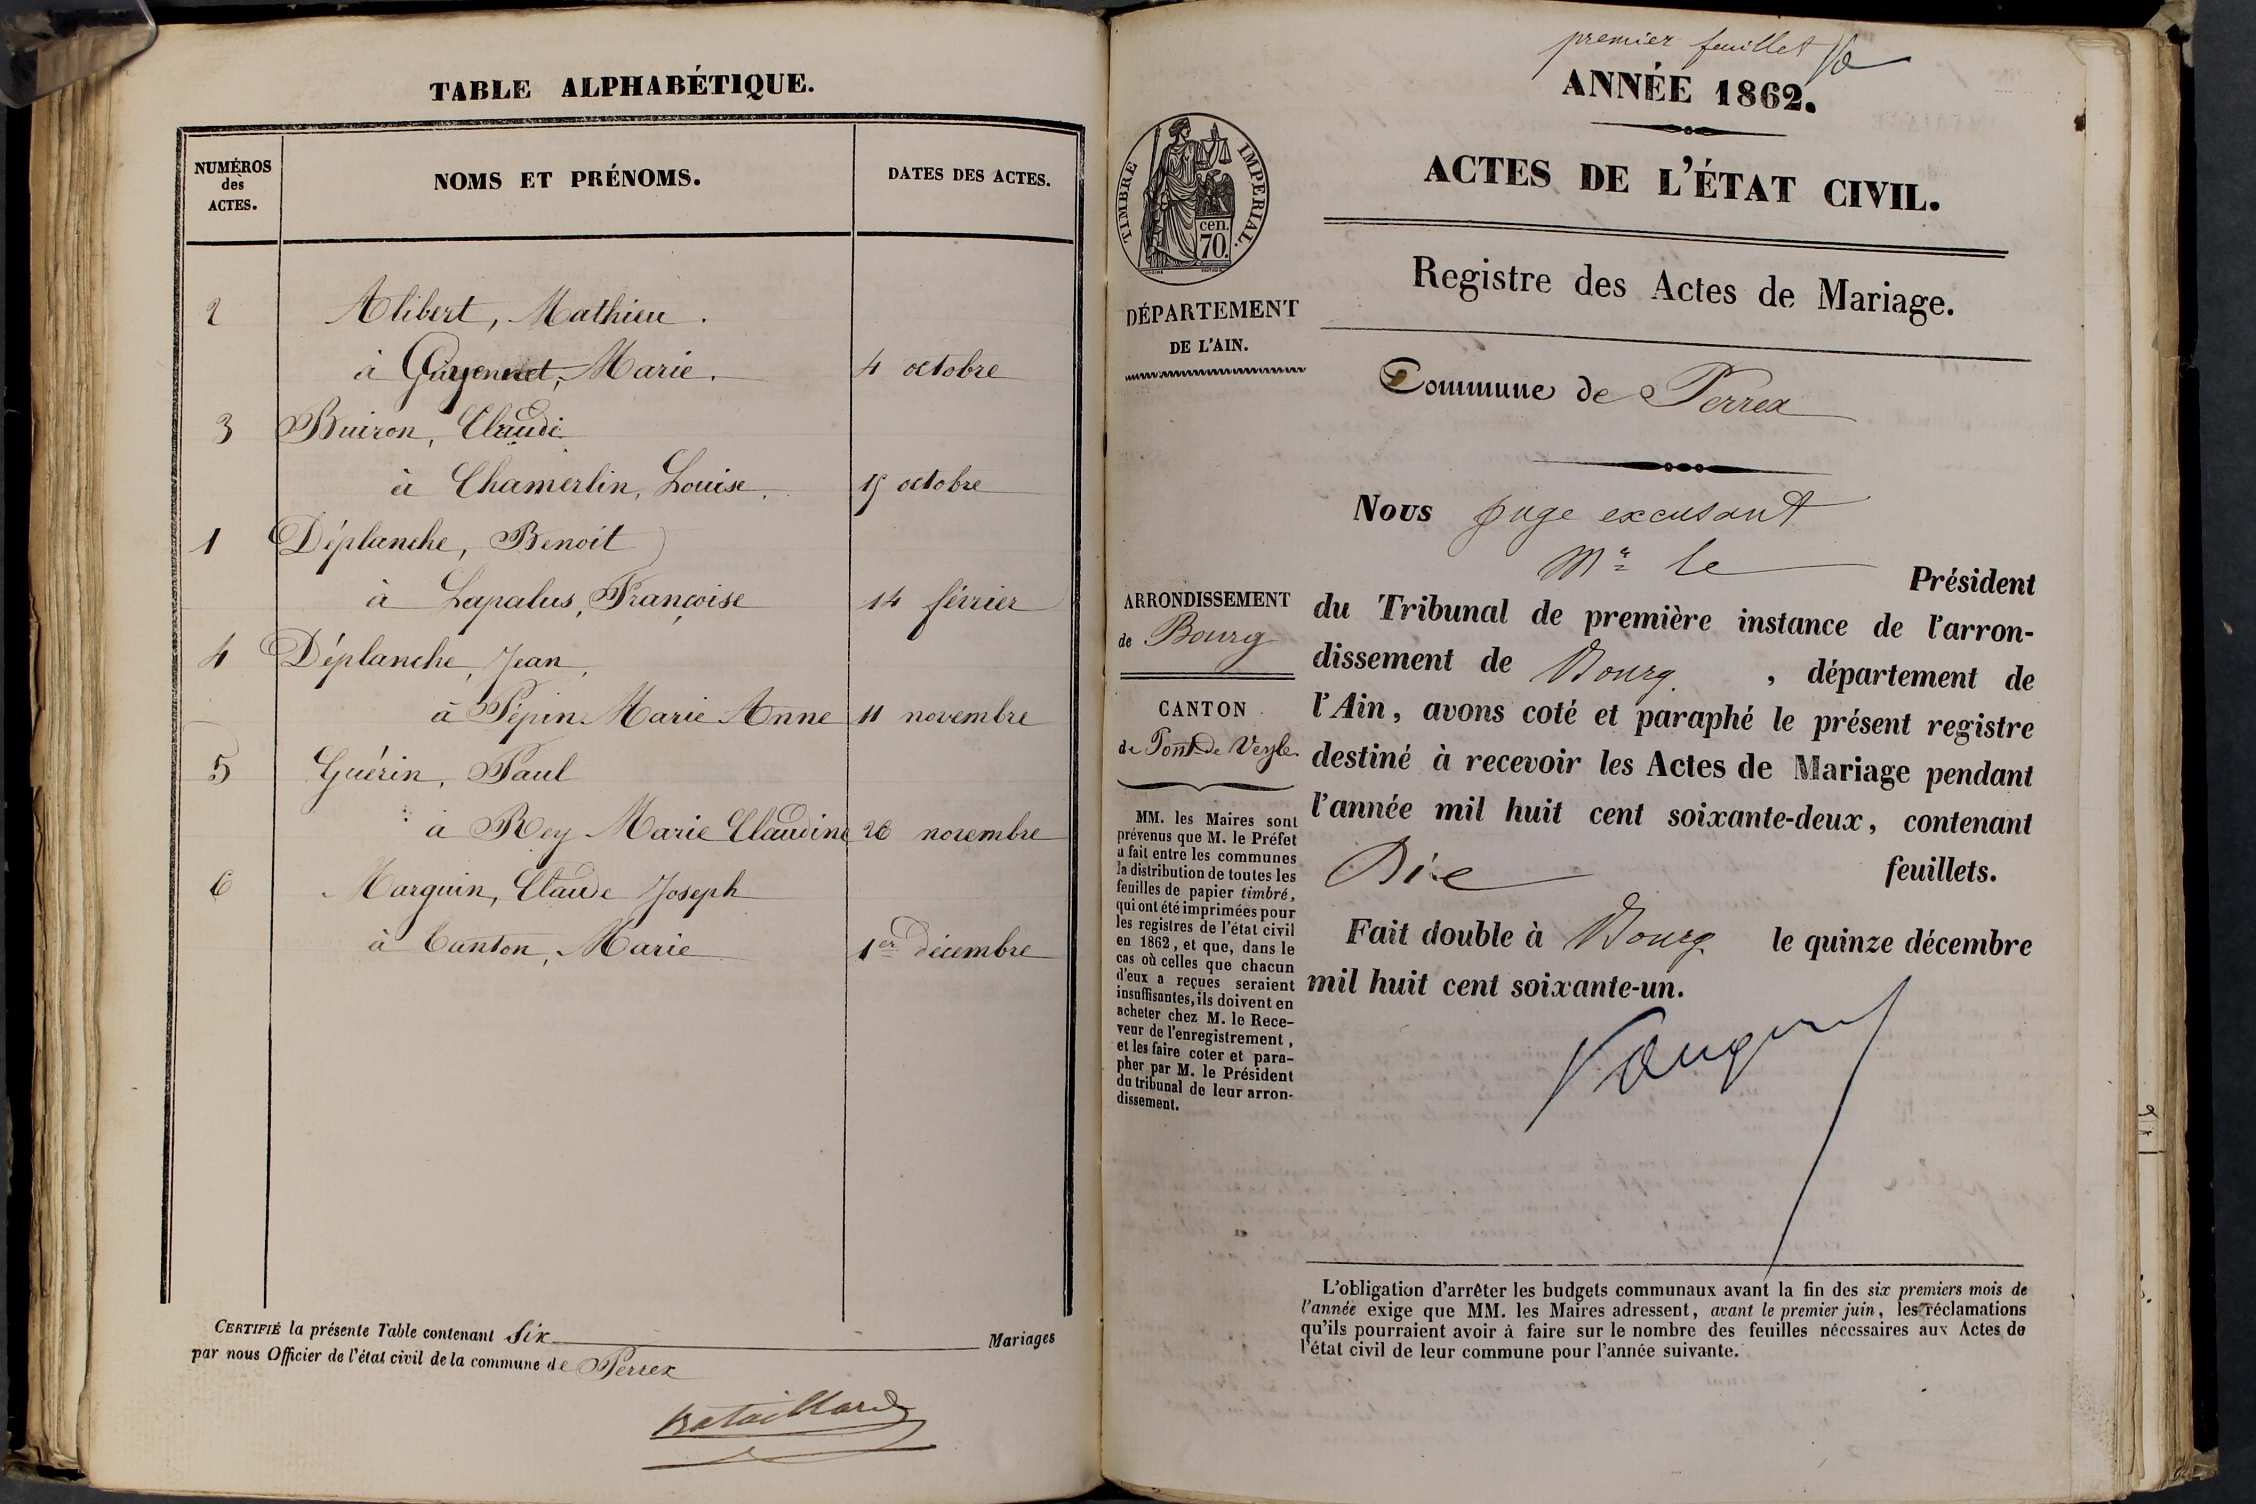 TABLE ALPHABÉTIQUE.
NUMÉROS
des
ACTES.
NOMS ET PRÉNOMS.
DATES DES ACTES.
2 Alibert, Mathieu.
à Guyennet, Marie. 4 octobre
3 Buiron, Claude
à Chamerlin, Louise. 15 octobre
1 Déplanche, Benoit
à Lapalus, Françoise 14 février
4 Déplanche, Jean,
à Pépin Marie Anne 11 novembre
5 Guérin, Paul
à Rey Marie Claudine 26 novembre
6 Marguin, Claude Joseph
à Canton, Marie 1er décembre
CERTIFIÉ la présente Table contenant Six Mariages
par nous Officier de l'état civil de la commune de Perrex
Bataillard
premier feuillet
ANNÉE 1862.
ACTES DE L'ÉTAT CIVIL.
TIMBRE IMPERIAL.
cen.
70.
Registre des Actes de Mariage.
DÉPARTEMENT
DE L'AIN.
Commune de Perrex
Nous juge excusant
Mr le Président
du Tribunal de première instance de l'arron-
dissement de Bourg, département de
l'Ain, avons coté et paraphé le présent registre
destiné à recevoir les Actes de Mariage pendant
l'année mil huit cent soixante-deux, contenant
Dix feuillets.
Fait double à Bourg le quinze décembre
mil huit cent soixante-un.
ARRONDISSEMENT
de Bourg
CANTON
de Pont de Veyle
MM. les Maires sont
prévenus que M. le Préfet
a fait entre les communes
la distribution de toutes les
feuilles de papier timbré,
qui ont été imprimées pour
les registres de l'état civil
en 1862, et que, dans le
cas où celles que chacun
d'eux a reçues seraient
insuffisantes, ils doivent en
acheter chez M. le Rece-
veur de l'enregistrement,
et les faire coter et para-
pher par M. le Président
du tribunal de leur arron-
dissement.
L'obligation d'arrêter les budgets communaux avant la fin des six premiers mois de
l'année exige que MM. les Maires adressent, avant le premier juin, les réclamations
qu'ils pourraient avoir à faire sur le nombre des feuilles nécessaires aux Actes de
l'état civil de leur commune pour l'année suivante.